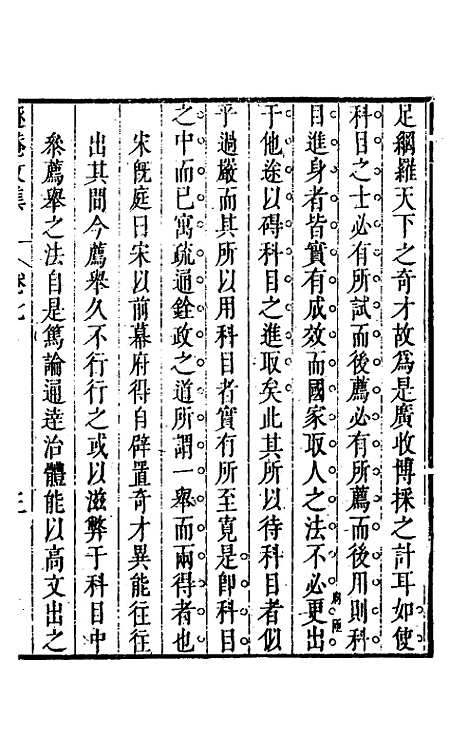 足網羅天下之奇才故為是廣收博採之計耳如使
科目之士必有所試而後薦必有所薦而後用則科
目進身者皆實有成效而國家取人之法不必更出
于他途以碍科目之進取矣此其所以待科目者似
乎過嚴而其所以用科目者實有所至寛是卽科目
之中而已寓疏通銓政之道所謂一舉而兩得者也
宋旣庭曰宋以前幕府得自辟置奇才異能往往
出其間今薦舉久不行行之或以滋弊于科目中
叅薦舉之法自是篤論通逹治體能以高文出之
菴文集
卷七